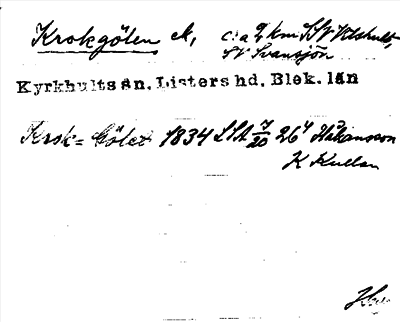 Krokgölen
c:a 2 km
SV Svansjön
Kyrkhults sn. Listers hd. Blek. län
Krok= Gölen 1834 LSA 7/20 26 Håkansson
K Kullan